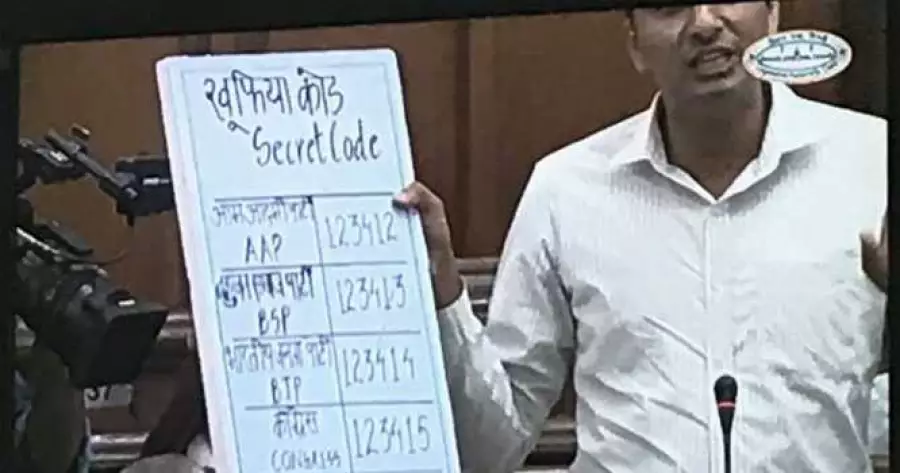 खूफिया कोड
Secret Code
आम आदमी पार्टी
AAP
123412
पार्टी
BSP
123413
भारतीय जनता पार्टी
BJP
123414
काँग्रेस
CONGRESS
123415
37